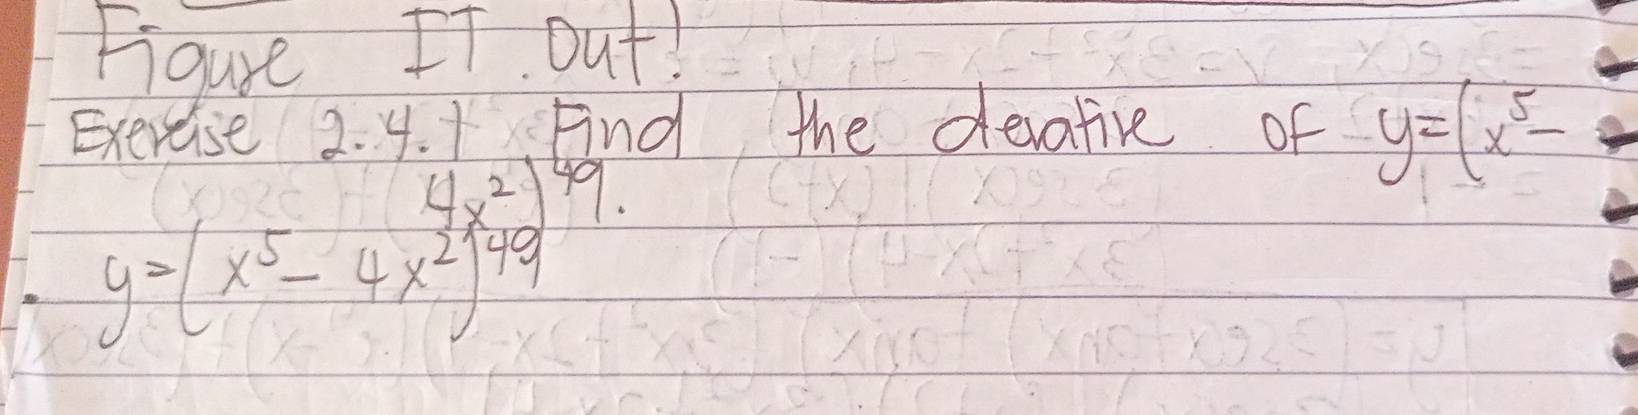 Figure IT Out!
Exercise 2.4.1 Find the derative of y=(x⁵-
4x²)⁴⁹.
y=(x⁵- 4x²)⁴⁹